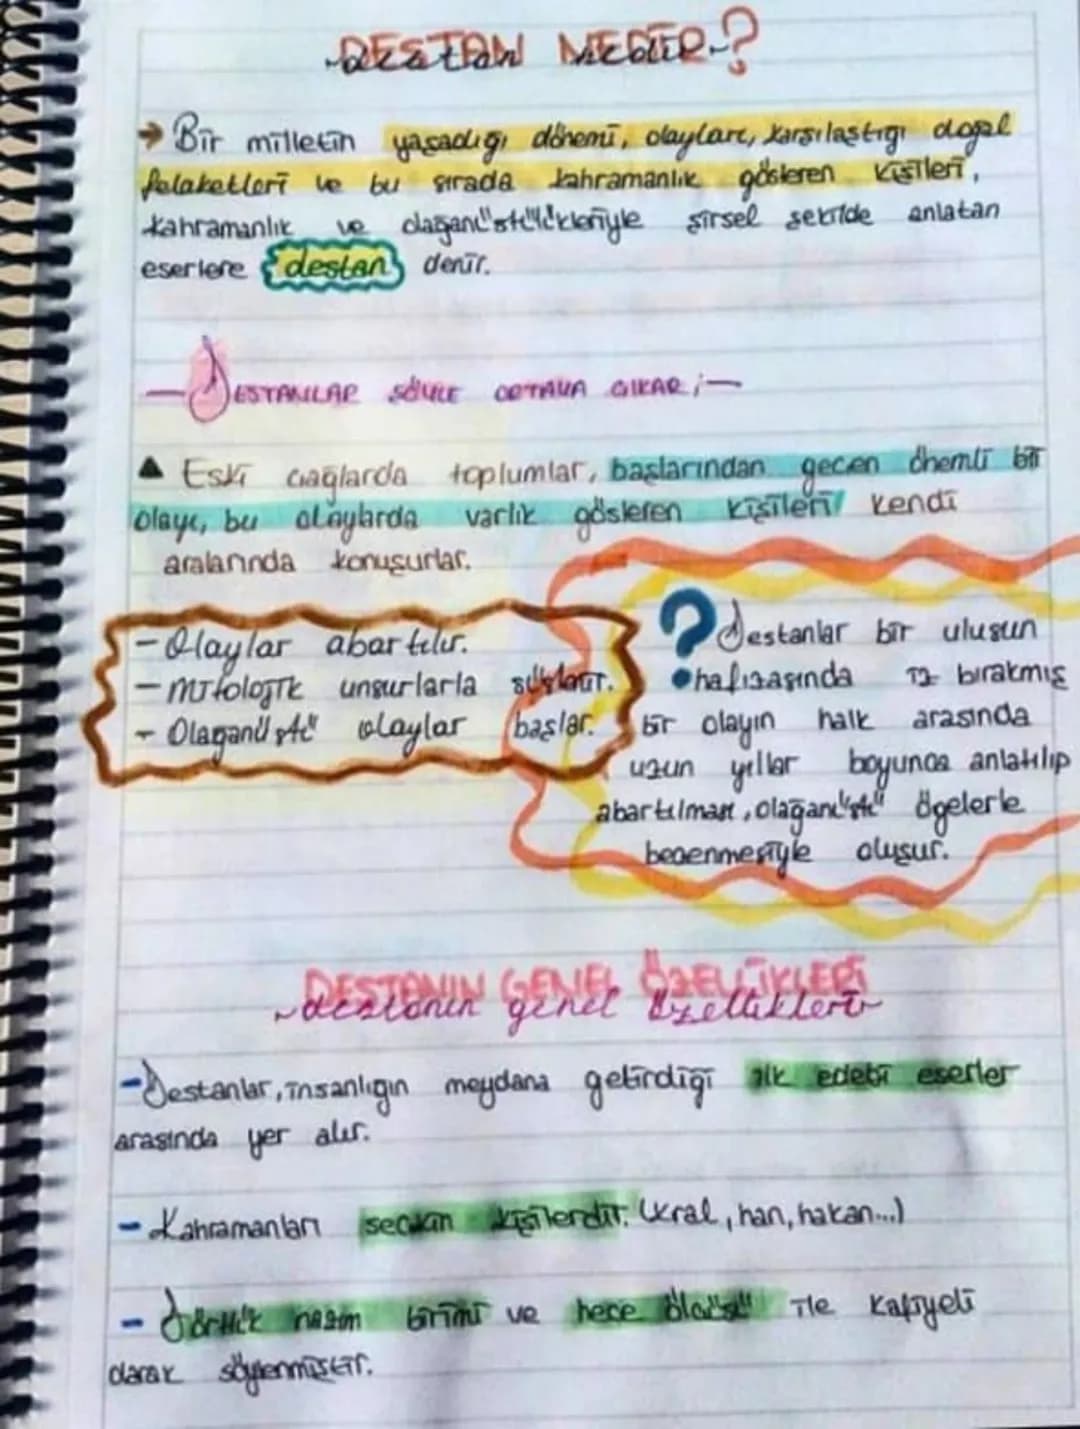 DESTAN NEDİR?
destan nedir
→ Bir milletin yaşadığı dönemi, olayları, karşılaştığı doğal
felaketleri ve bu sırada kahramanlık gösteren kişileri,
kahramanlık ve olağanüstülükleriyle şiirsel şekilde anlatan
eserlere destan denir.
- DESTANLAR ŞÖYLE ORTAYA ÇIKAR ; -
▲ Eski çağlarda toplumlar, başlarından geçen önemli bir
olayı, bu olaylarda varlık gösteren kişileri kendi
aralarında konuşurlar.
- Olaylar abartılır.
- Mitolojik unsurlarla süslenir.
- Olağanüstü olaylar başlar.
? Destanlar bir ulusun
hafızasında iz bırakmış
bir olayın halk arasında
uzun yıllar boyunca anlatılıp
abartılması, olağanüstü ögelerle
bezenmesiyle oluşur.
DESTANIN GENEL ÖZELLİKLERİ
destanın genel özellikleri
- Destanlar, insanlığın meydana getirdiği ilk edebi eserler
arasında yer alır.
- Kahramanları seçkin kişilerdir. (kral, han, hakan...)
- Dörtlük nazım birimi ve hece ölçüsü ile kafiyeli
olarak söylenmiştir.